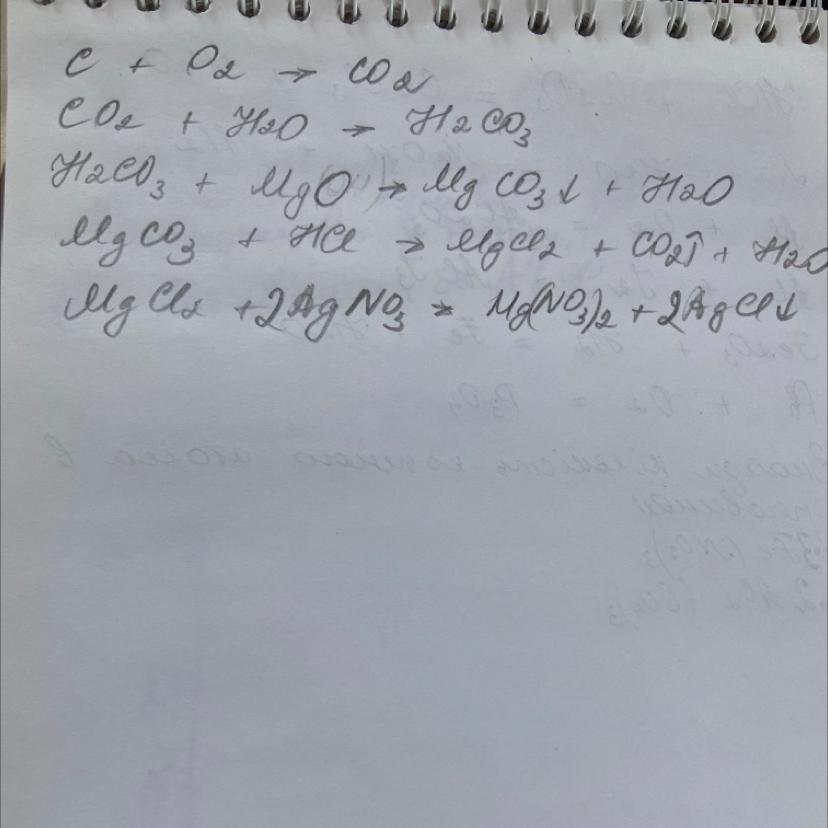 C + O2 → CO2
CO2 + H2O → H2CO3
H2CO3 + MgO → MgCO3↓ + H2O
MgCO3 + HCl → MgCl2 + CO2↑ + H2O
MgCl2 + 2AgNO3 → Mg(NO3)2 + 2AgCl↓